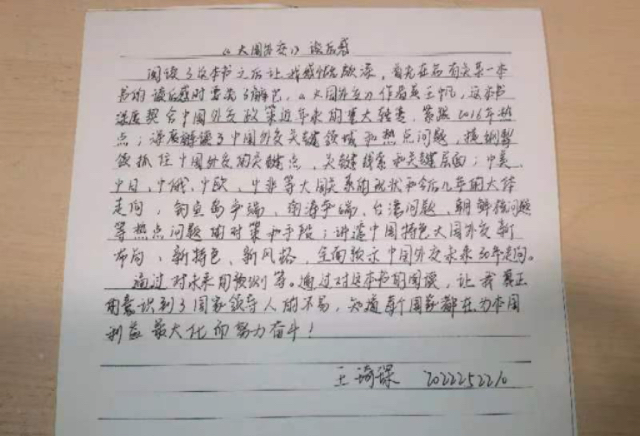 《大国外交》读后感
阅读了这本书之后让我感慨颇深,首先在后有关某一本
书的读后感时要先了解它,《大国外交》作者是王帆,这本书
深度契合中国外交政策近年来的重大转变,紧跟2016年热
点;深度解读了中国外交关键领域和热点问题,提纲挈
领抓住中国外交的关键点,关键线索和关键层面;中美、
中日、中俄、中欧、中非等大国关系的现状和今后几年的大体
走向,钓鱼岛争端,南海争端,台湾问题,朝鲜核问题
等热点问题的对策和手段;讲透中国特色大国外交新
布局、新特色、新风格,全面预示中国外交未来30年走向。
通过对未来的预测等。通过对这本书的阅读,让我真正
的意识到了国家领导人的不易,知道每个国家都在为本国
利益最大化而努力奋斗!
王琦 2022252210